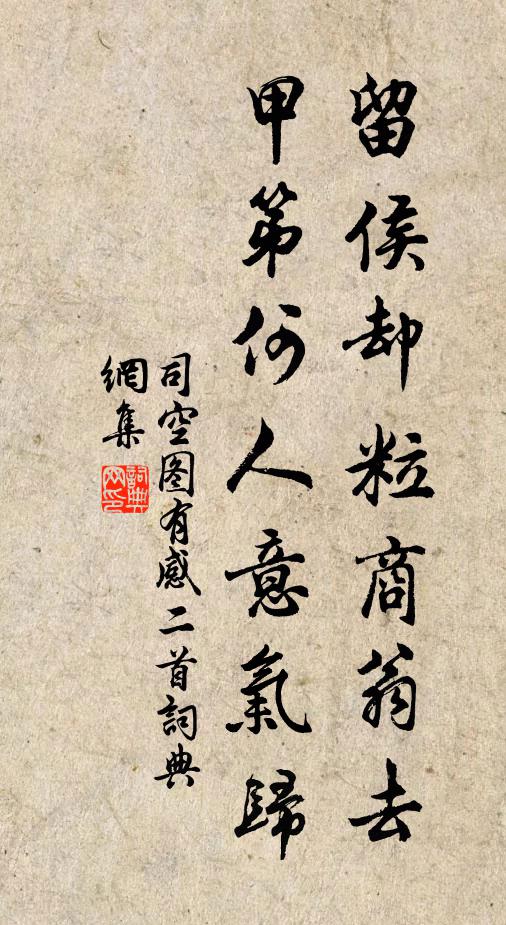 留侯却粒商翁去
甲第何人意氣歸
司空图有感二首詞典
網集
詞典
网印